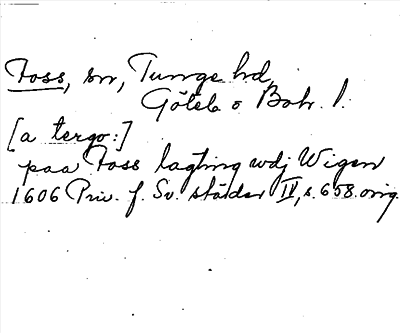 Foss, sn, Tunge hd,
Göteb o Boh. l.
[a tergo:]
paa Foss lagting wdj Wigen
1606 Priv. f. Sv. städer IV, s. 658. orig.